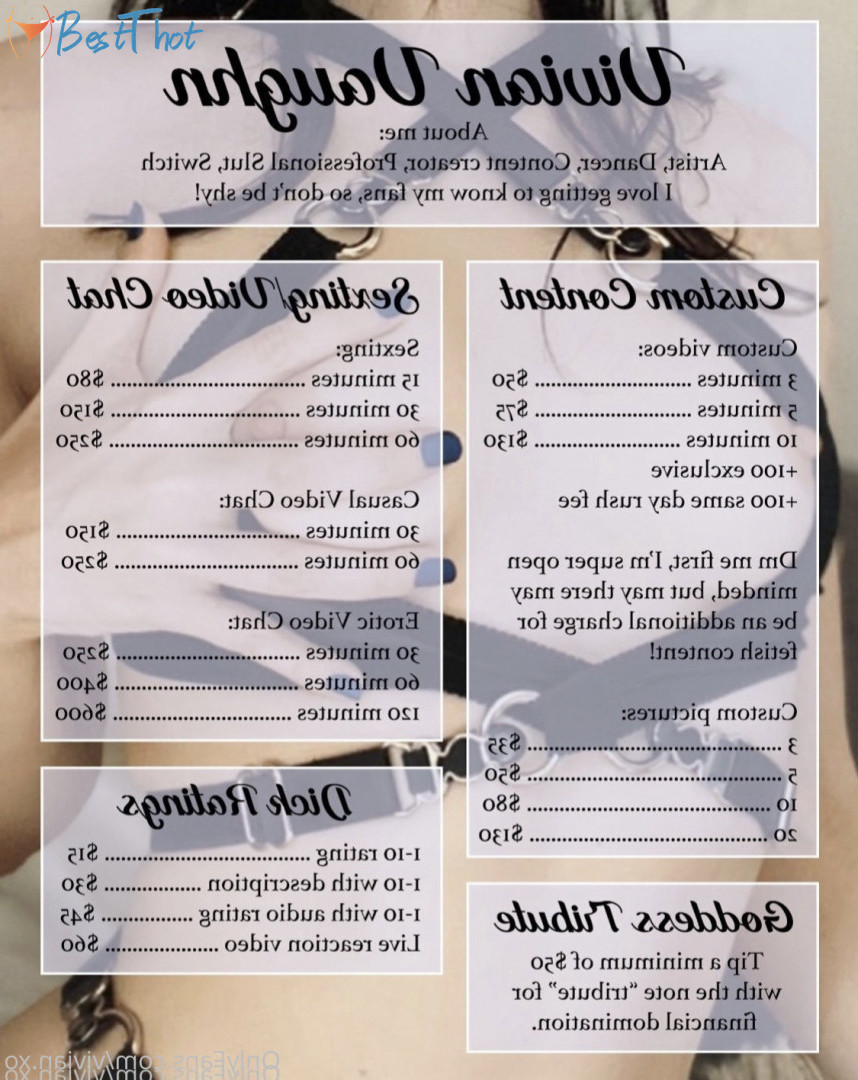 BestThot
Vivian Vaughn
About me:
Artist, Dancer, Content creator, Professional Slut, Switch
I love getting to know my fans, so don't be shy!
Custom Content
Custom videos:
3 minutes ............................ $50
5 minutes ............................ $75
10 minutes .......................... $130
+100 exclusive
+100 same day rush fee
Dm me first, I'm super open
minded, but may there may
be an additional charge for
fetish content!
Custom pictures:
3 .............................................. $35
5 .............................................. $50
10 ............................................ $80
20 ........................................... $130
Goddess Tribute
Tip a minimum of $50
with the note "tribute" for
financial domination.
Sexting/Video Chat
Sexting:
15 minutes ................................... $80
30 minutes .................................. $150
60 minutes .................................. $250
Casual Video Chat:
30 minutes ................................. $150
60 minutes ................................. $250
Erotic Video Chat:
30 minutes ................................. $250
60 minutes ................................. $400
120 minutes ................................ $600
Dick Ratings
1-10 rating ..................................... $15
1-10 with description .................. $30
1-10 with audio rating ................ $45
Live reaction video .................... $60
OnlyFans.com/vivian.xo